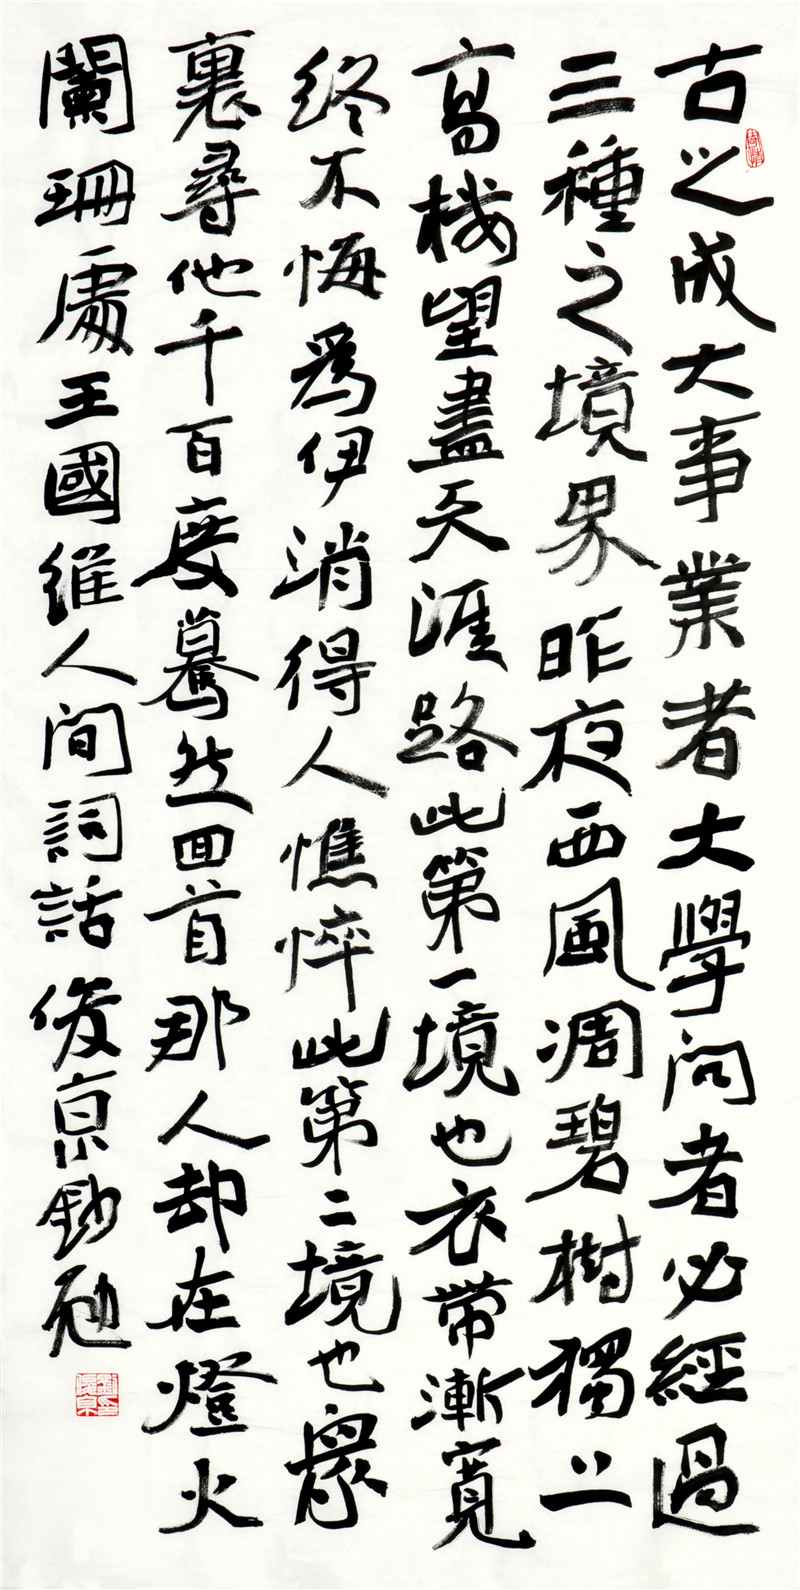 古之成大事業者大學問者必經過
三種之境界昨夜西風凋碧樹獨上
高樓望盡天涯路此第一境也衣帶漸寬
終不悔爲伊消得人憔悴此第二境也眾
裏尋他千百度驀然回首那人却在燈火
闌珊處王國維人間詞話 俊京鈔勉